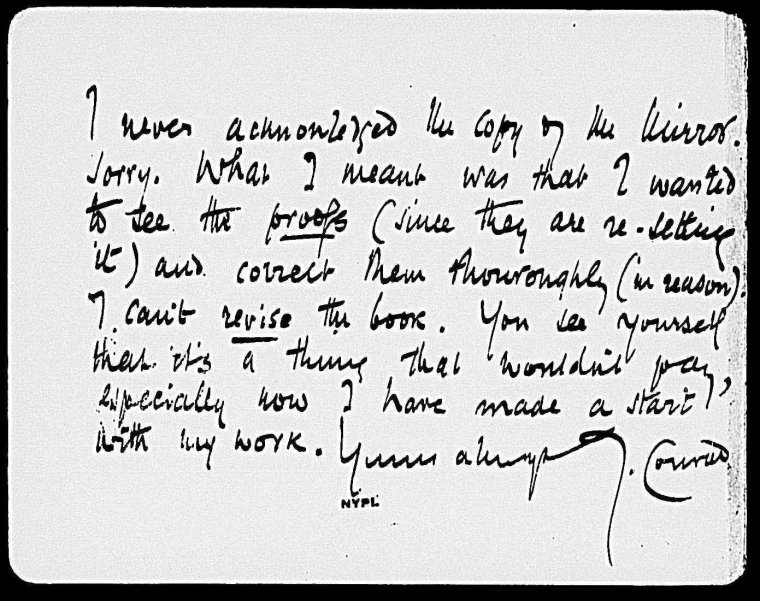 I never acknowledged the copy of the Mirror.
Sorry. What I meant was that I wanted
to see the proofs (since they are re-setting
it) and correct them thouroughly (in reason).
I can't revise the book. You see yourself
that it's a thing that wouldn't pay,
especially now I have made a start
with my work. Yours always J. Conrad.
NYPL